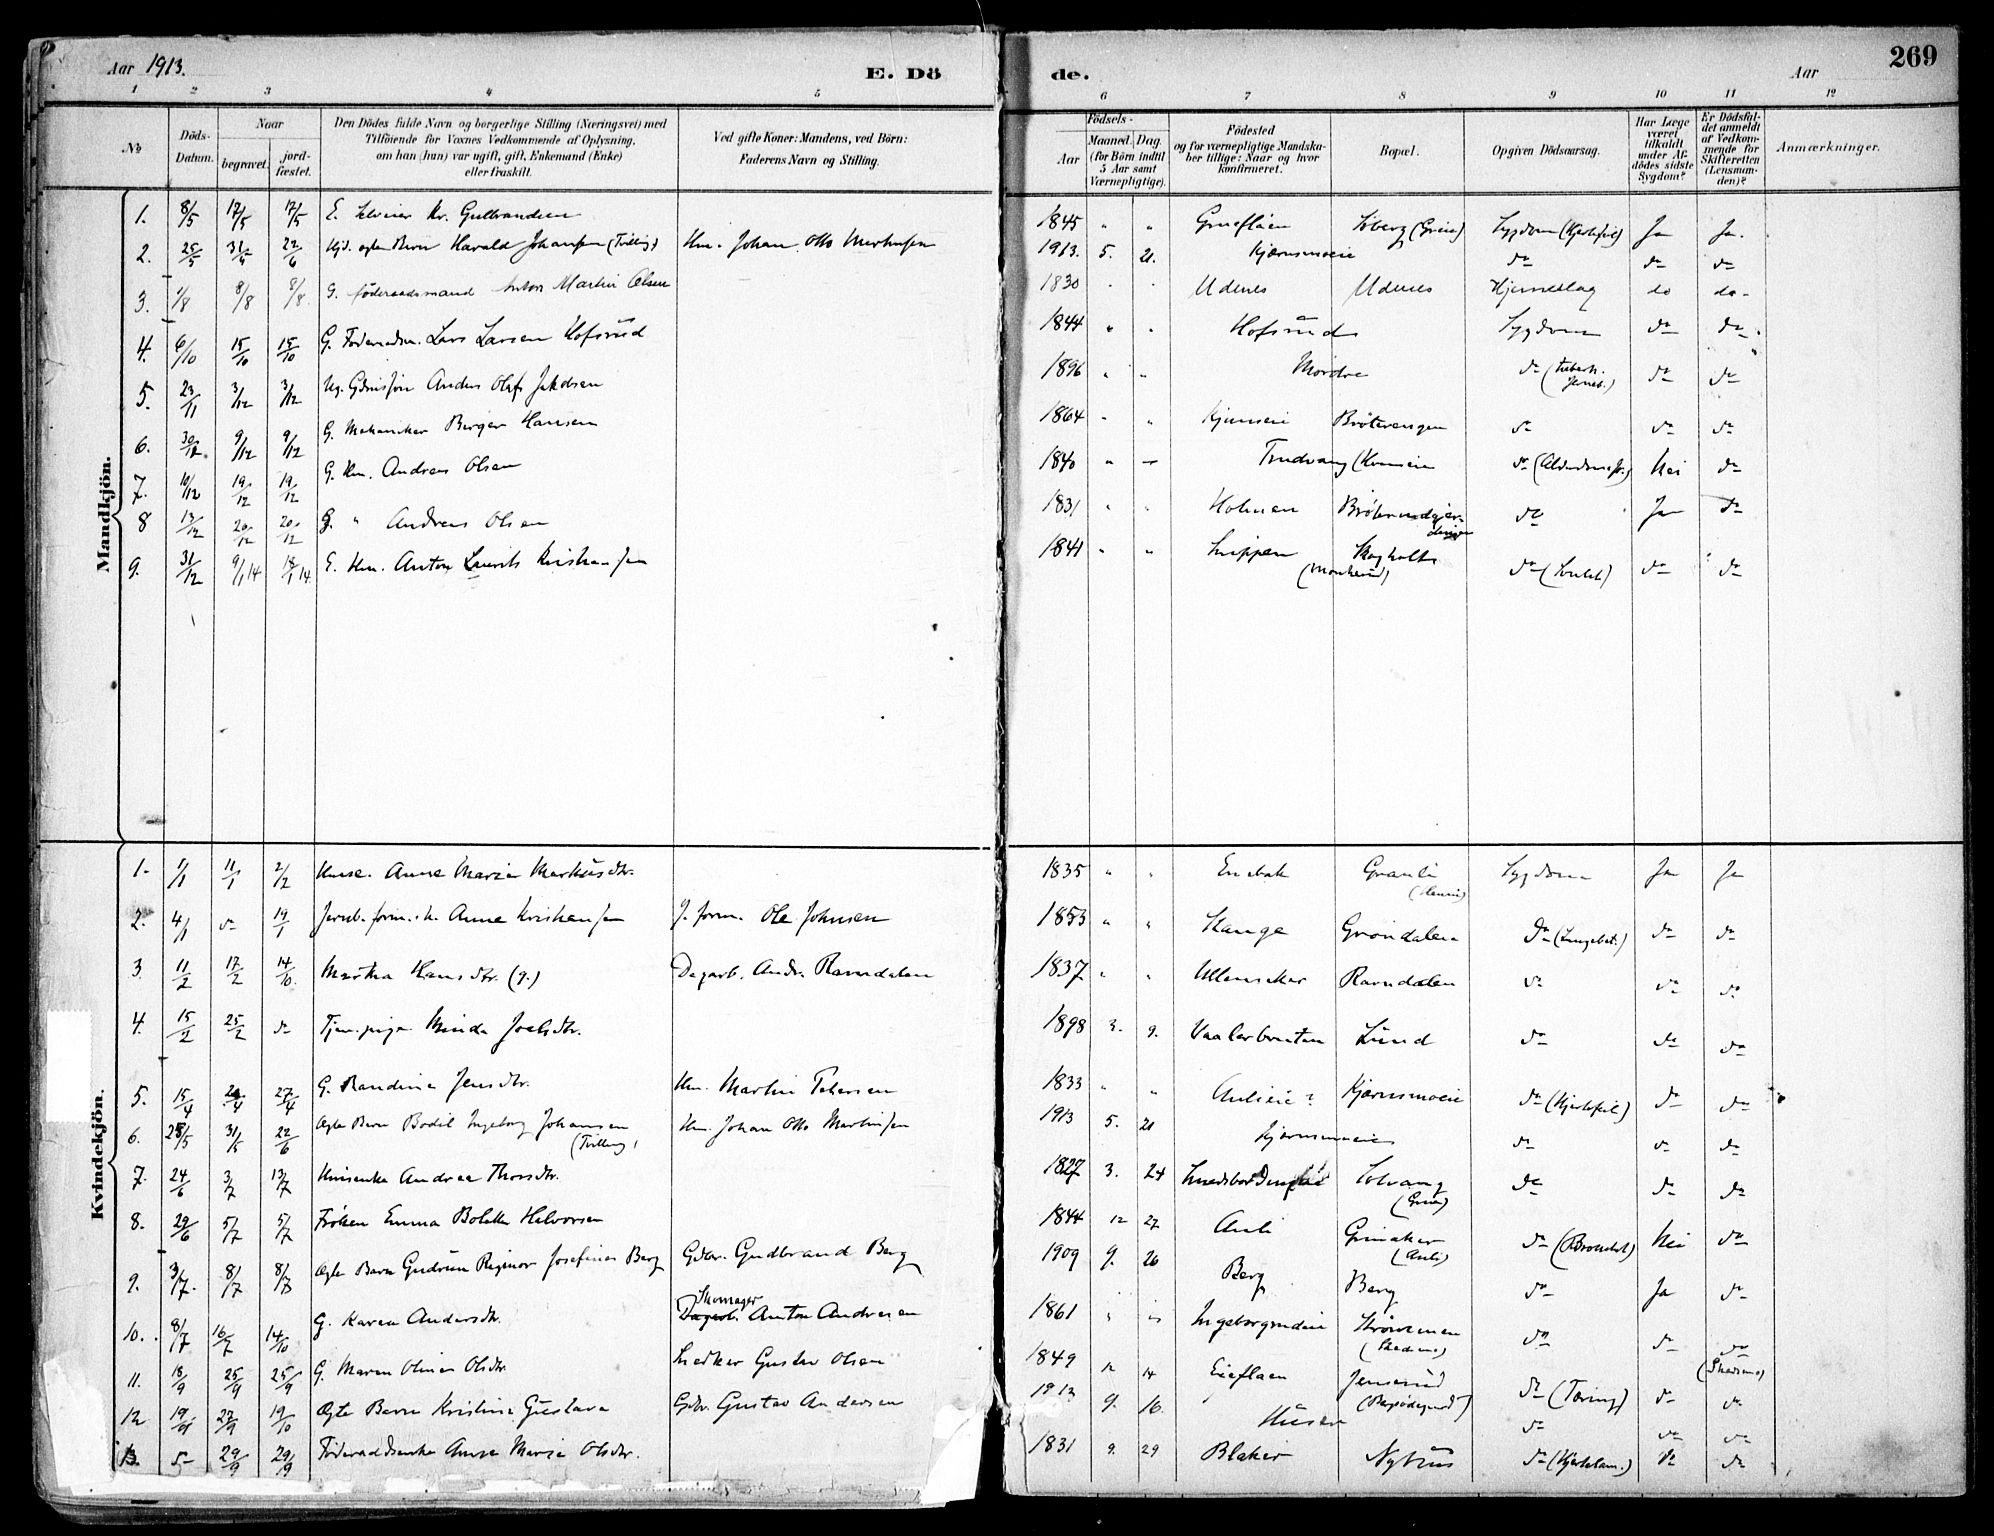 Aar 1913.
E. Dö
de.
Aar
269
1 2 3 4 5 6 7 8 9 10 11 12
No
Döds-Datum.
Naar
begravet.
jord-fæstet.
Den Dödes fulde Navn og borgerlige Stilling (Næringsvei) med
Tilföiende for Voxnes Vedkommende af Oplysning,
om han (hun) var ugift, gift, Enkemand (Enke)
eller fraskilt.
Ved gifte Koner: Mandens, ved Börn:
Faderens Navn og Stilling.
Födsels-
Aar
Maaned. Dag.
(for Börn indtil
5 Aar samt
Værnepligtige).
Födested
og for værnepligtige Mandska-
ber tillige: Naar og hvor
konfirmeret.
Bopæl.
Opgiven Dödsaarsag.
Har Læge
været
tilkaldt
under Af-
dödes sidste
Sygdom?
Er Dödsfal-
det anmeldt
af Vedkom-
mende for
Skifteretten
(Lensman-
den)?
Anmærkninger.
Mandkjön.
1. 8/5 17/5 17/5 E. Kr. Gulbrandsen 1845 " " Sygdom (Hjertefeil) Ja Ja.
2. 25/5 31/5 22/6 ægte Barn Harald Johansen (Tvilling) Hm. Johan Otto Martinsen 1913. 5. 21. Kjærnsmoeie do do do
3. 1/8 8/8 8/8. G. föderaadsmand Anton Martin Olsen 1830 Udenes Udenes Hjerneslag do do
4. 6/10 15/10 15/10 G. Lars Larsen Hofsrud 1844 " " Hofsrud Sygdom do do
5. 23/11 3/12 3/12 Anders Olaf Jakobsen 1896 " " Mordre do do do
6. 30/12 9/12 9/12 G. Mekaniker Birger Hansen 1864 " " Bröterengen do do do
7. 10/12 19/12 19/12 G. Hm. Andreas Olsen 1840 " Trudvang do Nei do
8 13/12 20/12 20/12 G. " Andreas Olsen 1831 " " Holmen do Ja do
9. 31/12 9/1 14 14/1 14 E. Hm. Anton Laurits Kristiansen 1841 " " do do do
Kvindekjön.
1. 1/1 11/1 2/2 Anne Marie Markusdtr. 1835 " " Enebak Granli Sygdom Ja Ja
2. 4/1 do 19/1 Anne Kristiansen J. form. Ole Johnsen 1853 " " Stange Gröndalen do do do
3 11/2 17/2 14/10. Martha Hansdtr. (g.) Dagarb. Andr. Ravndalen 1837 " " Ullensaker Ravndalen do do do
4. 15/2 25/2 do Tjen.pige Minda Joelsdtr. 1898 3. 9. Vaalerbraaten Lund do do do
5. 15/4 27/4 G. Randine Jensdtr. Hm. Martin Petersen 1833 " " Aulieie? Kjærnsmoeie do (Hjertefeil) do do
6. 25/5 31/5 22/6 Ægte Barn Bodil Ingeborg Johansen (Tvilling) Hm. Johan Otto Martinsen 1913 5. 21 Kjærnsmoeie do do do
7. 24/6 3/7 13/7 Andrea Thorsdtr. 1827 3. 24 Solvang do do do
8. 29/6 5/7 5/7 Fröken Emma Bolette Halvorsen 1844 12 27 Auli Grinaker (Auli) do Nei do
9. 3/7. 8/7 8/7 Ægte Barn Gudrun Ragnor Josefine Berg Gdbr. Gudbrand Berg 1909 9. 26 Berg Berg do Ja do
10. 8/7 16/7 14/10 G. Karen Andersdtr. Skomager Dagarb. Anton Andresen 1861 " " Strömmen (Skedsmo) do do do (Skedsmo)
11. 18/9 25/9 25/9 G. Maren Oline Olsdtr. Snedker Gustav Olsen 1849 12 14 Eieflaen Jensrud do (Tæring) do do
12 19/9 27/9 19/10 Ægte Barn Kristine Gustava Gdbr. Gustav Andersen 1913 9. 16. Huser do do do
13. do 29/9 29/9 Föderaadsenke Anne Marie Olsdtr. 1831 9. 29 Blaker Nyhus do (Hjertelam.) do do